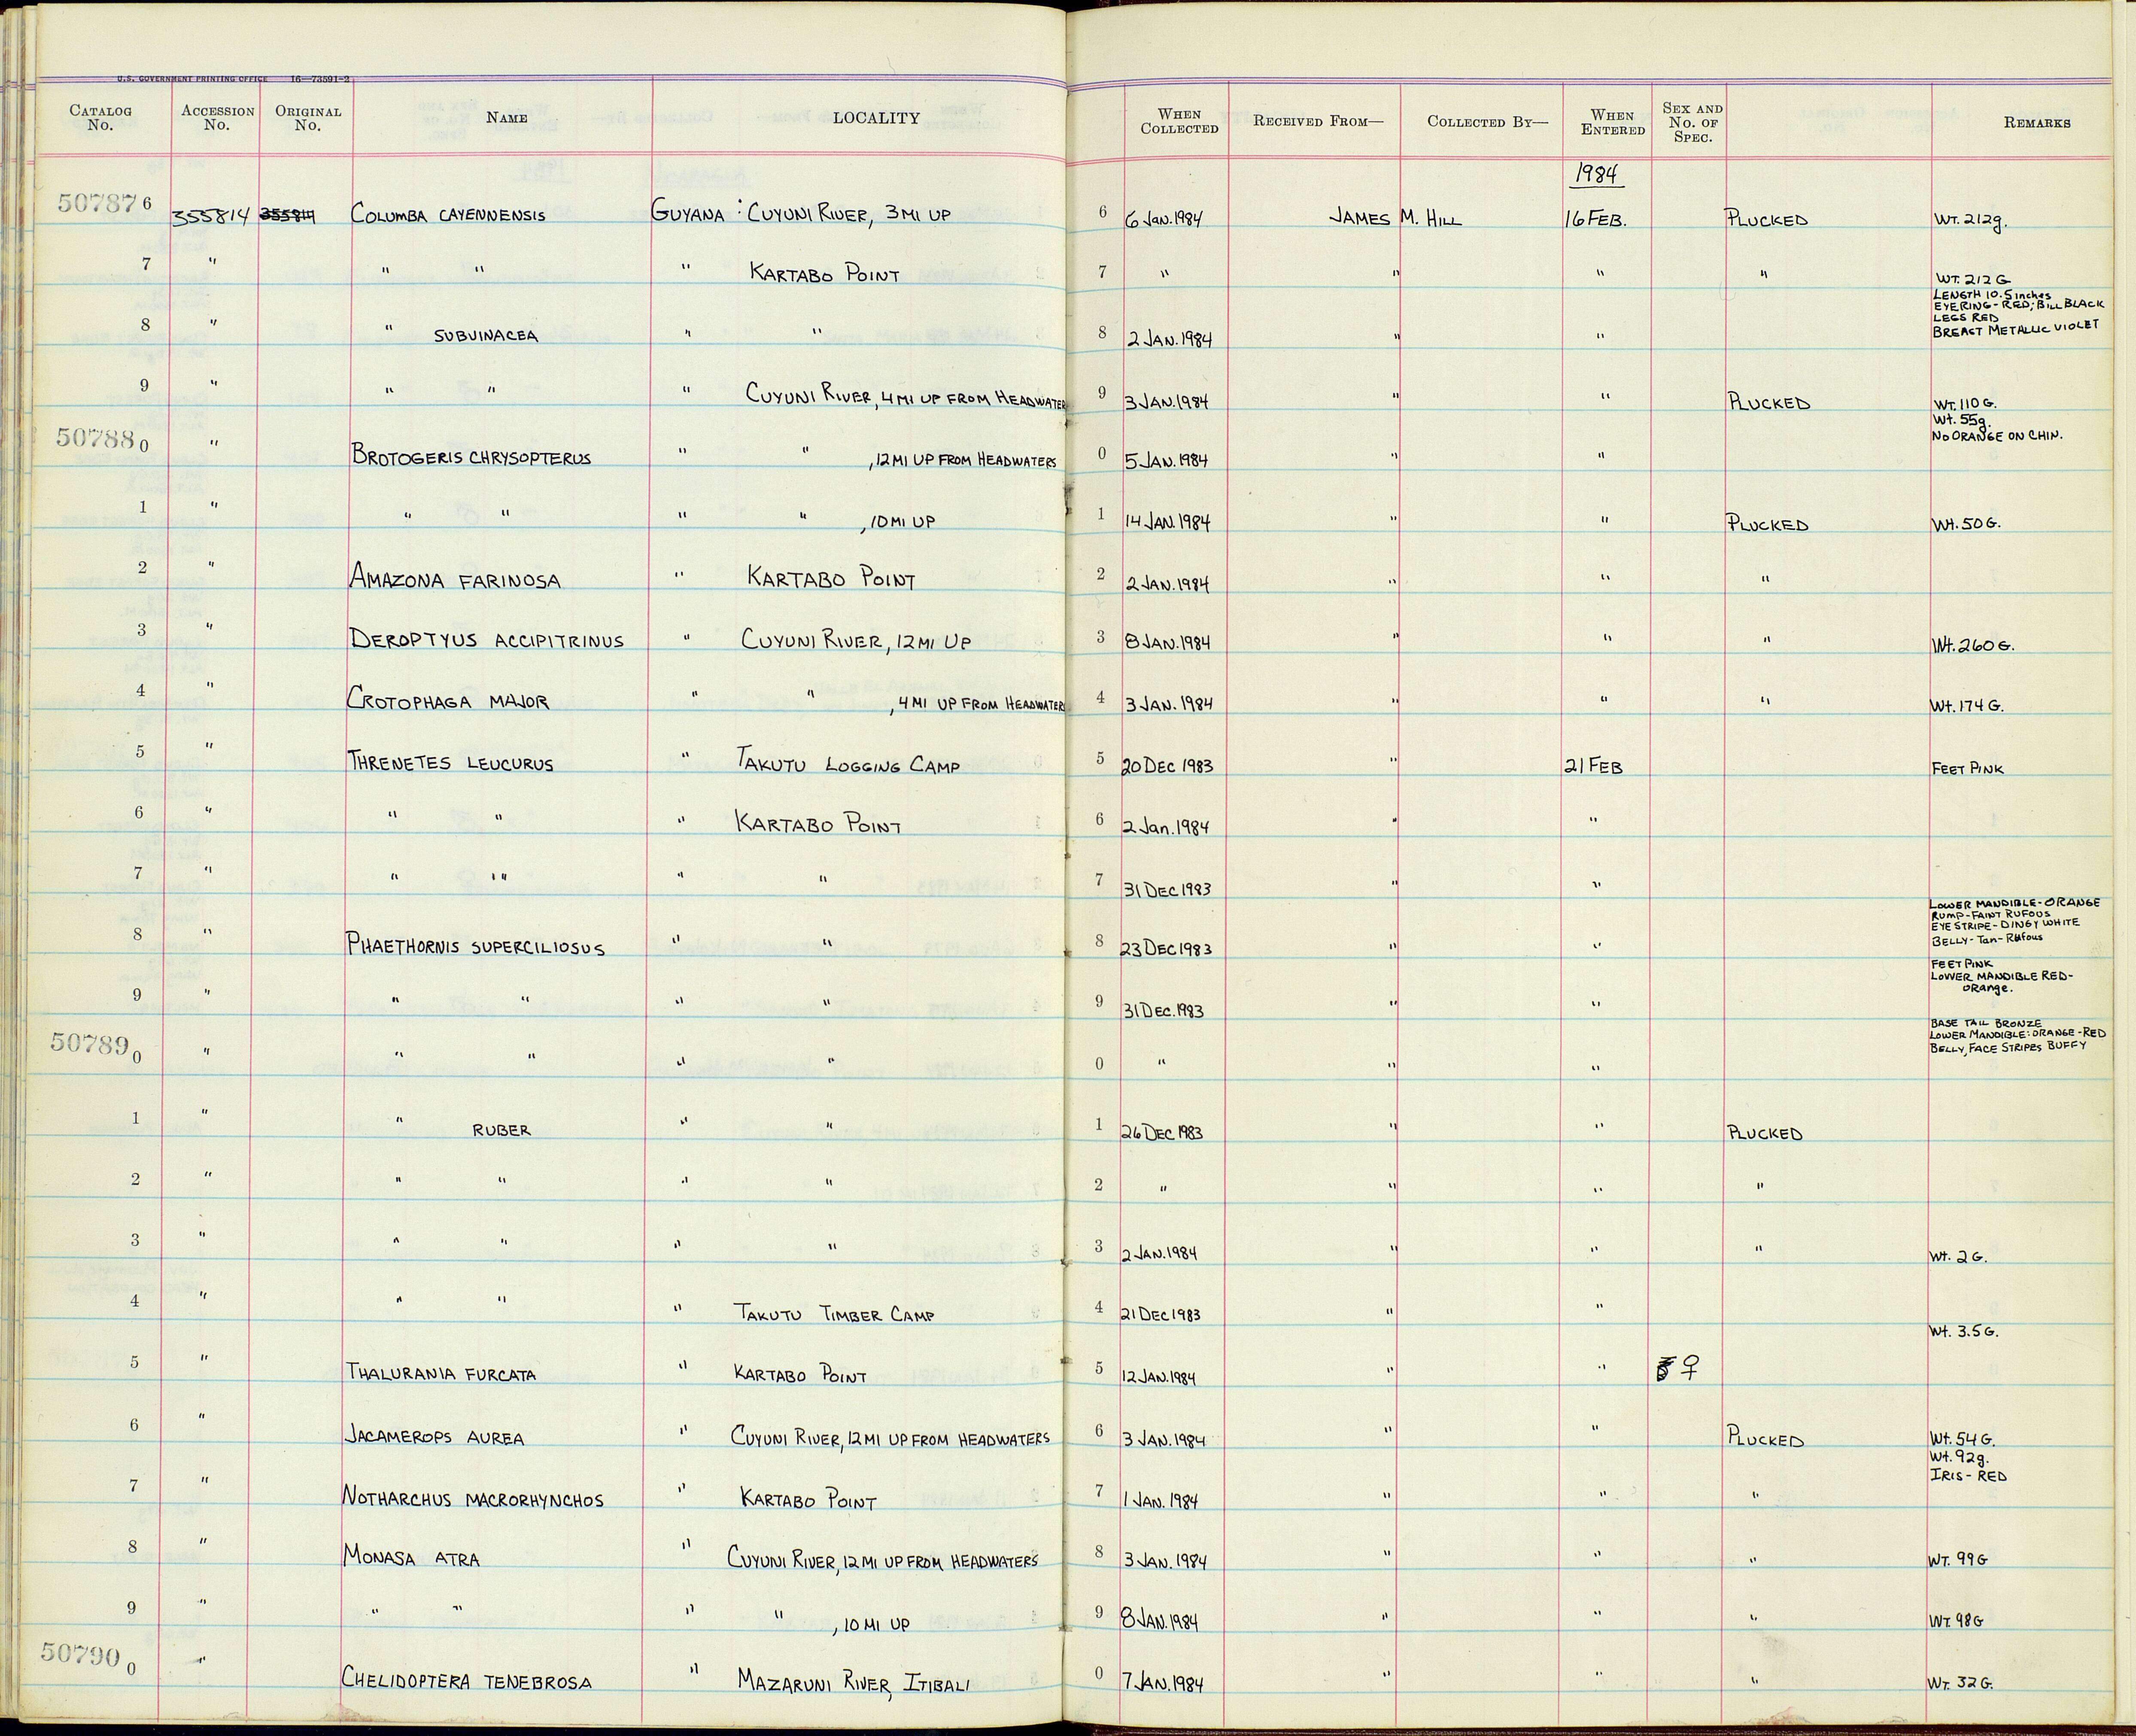 U.S. GOVERNMENT PRINTING OFFICE 16—73591-2
CATALOG No. ACCESSION No. ORIGINAL No. NAME LOCALITY WHEN COLLECTED RECEIVED FROM— COLLECTED BY— WHEN ENTERED SEX AND No. OF SPEC. REMARKS
1984
507876 355814 355814 COLUMBA CAYENNENSIS GUYANA : CUYUNI RIVER, 3 MI UP 6 6 JAN. 1984 JAMES M. HILL 16 FEB. PLUCKED WT. 212g.
7 " " " " KARTABO POINT 7 " " " " WT. 212 G
LENGTH 10.5 inches
EYERING - RED; BILL BLACK
LEGS RED
BREAST METALLIC VIOLET
8 " " SUBVINACEA " " 8 2 JAN. 1984 " "
9 " " " " CUYUNI RIVER, 4 MI UP FROM HEADWATER 9 3 JAN. 1984 " " PLUCKED WT. 110 G.
Wt. 55g.
NO ORANGE ON CHIN.
507880 " BROTOGERIS CHRYSOPTERUS " " , 12 MI UP FROM HEADWATERS 0 5 JAN. 1984 " "
1 " " " " " , 10 MI UP 1 14 JAN. 1984 " " PLUCKED Wt. 50 G.
2 " AMAZONA FARINOSA " KARTABO POINT 2 2 JAN. 1984 " " "
3 " DEROPTYUS ACCIPITRINUS " CUYUNI RIVER, 12 MI UP 3 8 JAN. 1984 " " " Wt. 260 G.
4 " CROTOPHAGA MAJOR " " , 4 MI UP FROM HEADWATERS 4 3 JAN. 1984 " " " Wt. 174 G.
5 " THRENETES LEUCURUS " TAKUTU LOGGING CAMP 5 20 DEC 1983 " 21 FEB FEET PINK
6 " " " " KARTABO POINT 6 2 Jan. 1984 " "
7 " " " " " 7 31 DEC 1983 " "
LOWER MANDIBLE - ORANGE
RUMP - FAINT RUFOUS
EYE STRIPE - DINGY WHITE
BELLY - Tan - Rufous
8 " PHAETHORNIS SUPERCILIOSUS " " 8 23 DEC 1983 " "
FEET PINK
LOWER MANDIBLE RED-
ORange.
9 " " " " " 9 31 DEC. 1983 " "
BASE TAIL BRONZE
LOWER MANDIBLE: ORANGE - RED
BELLY, FACE STRIPES BUFFY
507890 " " " " " 0 " " "
1 " " RUBER " " 1 26 DEC 1983 " " PLUCKED
2 " " " " " 2 " " " "
3 " " " " " 3 2 JAN. 1984 " " " Wt. 2 G.
4 " " " " TAKUTU TIMBER CAMP 4 21 DEC 1983 " "
Wt. 3.5 G.
5 " THALURANIA FURCATA " KARTABO POINT 5 12 JAN. 1984 " " ♀
6 " JACAMEROPS AUREA " CUYUNI RIVER, 12 MI UP FROM HEADWATERS 6 3 JAN. 1984 " " PLUCKED Wt. 54 G.
Wt. 92g.
IRIS - RED
7 " NOTHARCHUS MACRORHYNCHOS " KARTABO POINT 7 1 JAN. 1984 " " "
8 " MONASA ATRA " CUYUNI RIVER, 12 MI UP FROM HEADWATERS 8 3 JAN. 1984 " " " WT. 99 G
9 " " " " " , 10 MI UP 9 8 JAN. 1984 " " " WT. 98 G
507900 " CHELIDOPTERA TENEBROSA " MAZARUNI RIVER, ITIBALI 0 7 JAN. 1984 " " " WT. 32 G.